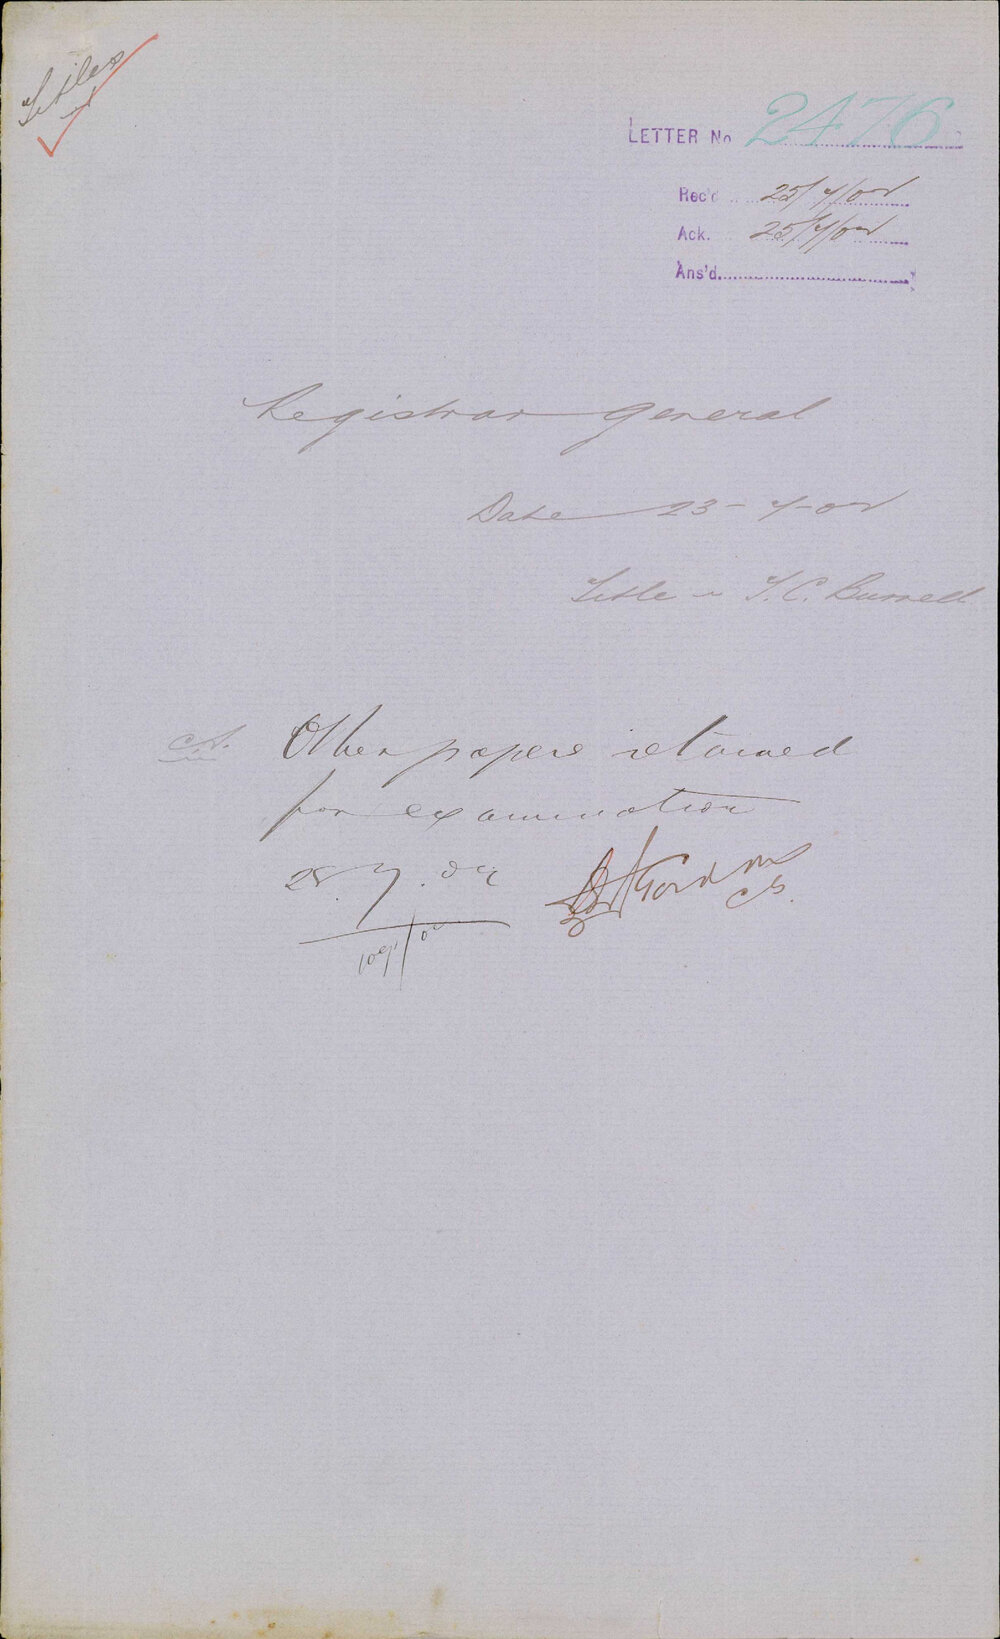 Titles
LETTER No 2476
Rec'd 25/7/02
Ack. 25/7/02
Ans'd.
Registrar General
Date 23-7-02
Title T.C. Burnell
Other papers returned
for examination
28.7.02
Gordon
C.S.